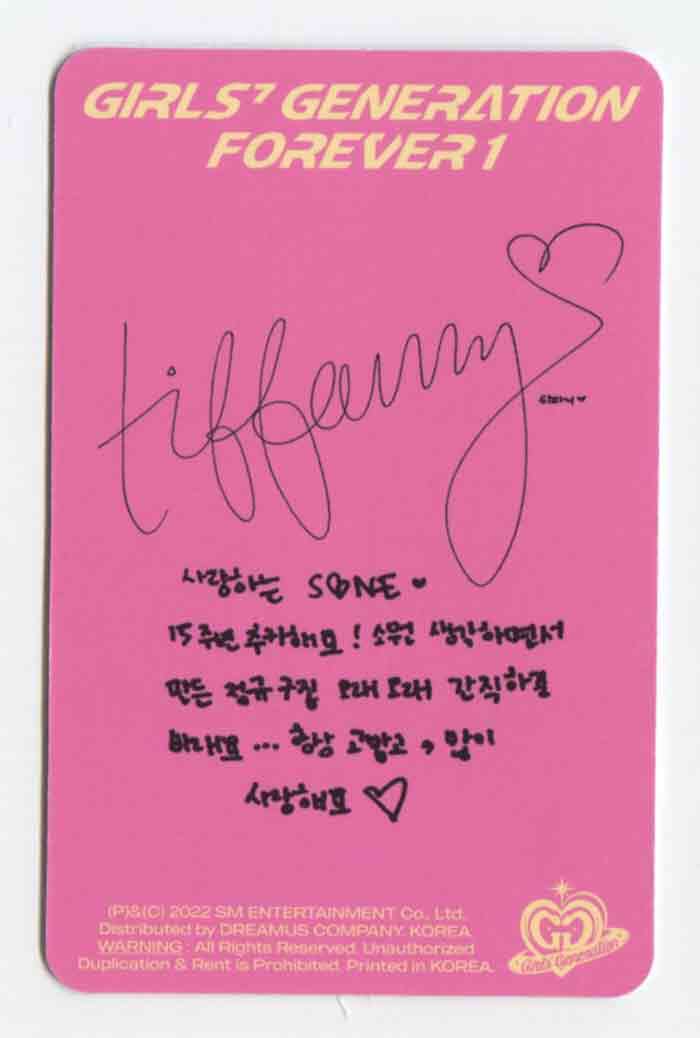 GIRLS' GENERATION
FOREVER 1
tiffany
사랑하는 SONE
15주년 추카해요! 소원 생각하면서
만든 정규구집 오래오래 간직하길
바래요... 항상 고맙고, 많이
사랑해요
(P)&(C) 2022 SM ENTERTAINMENT Co., Ltd.
Distributed by DREAMUS COMPANY. KOREA
WARNING : All Rights Reserved. Unauthorized
Duplication & Rent is Prohibited. Printed in KOREA.
GG
Girls' Generation